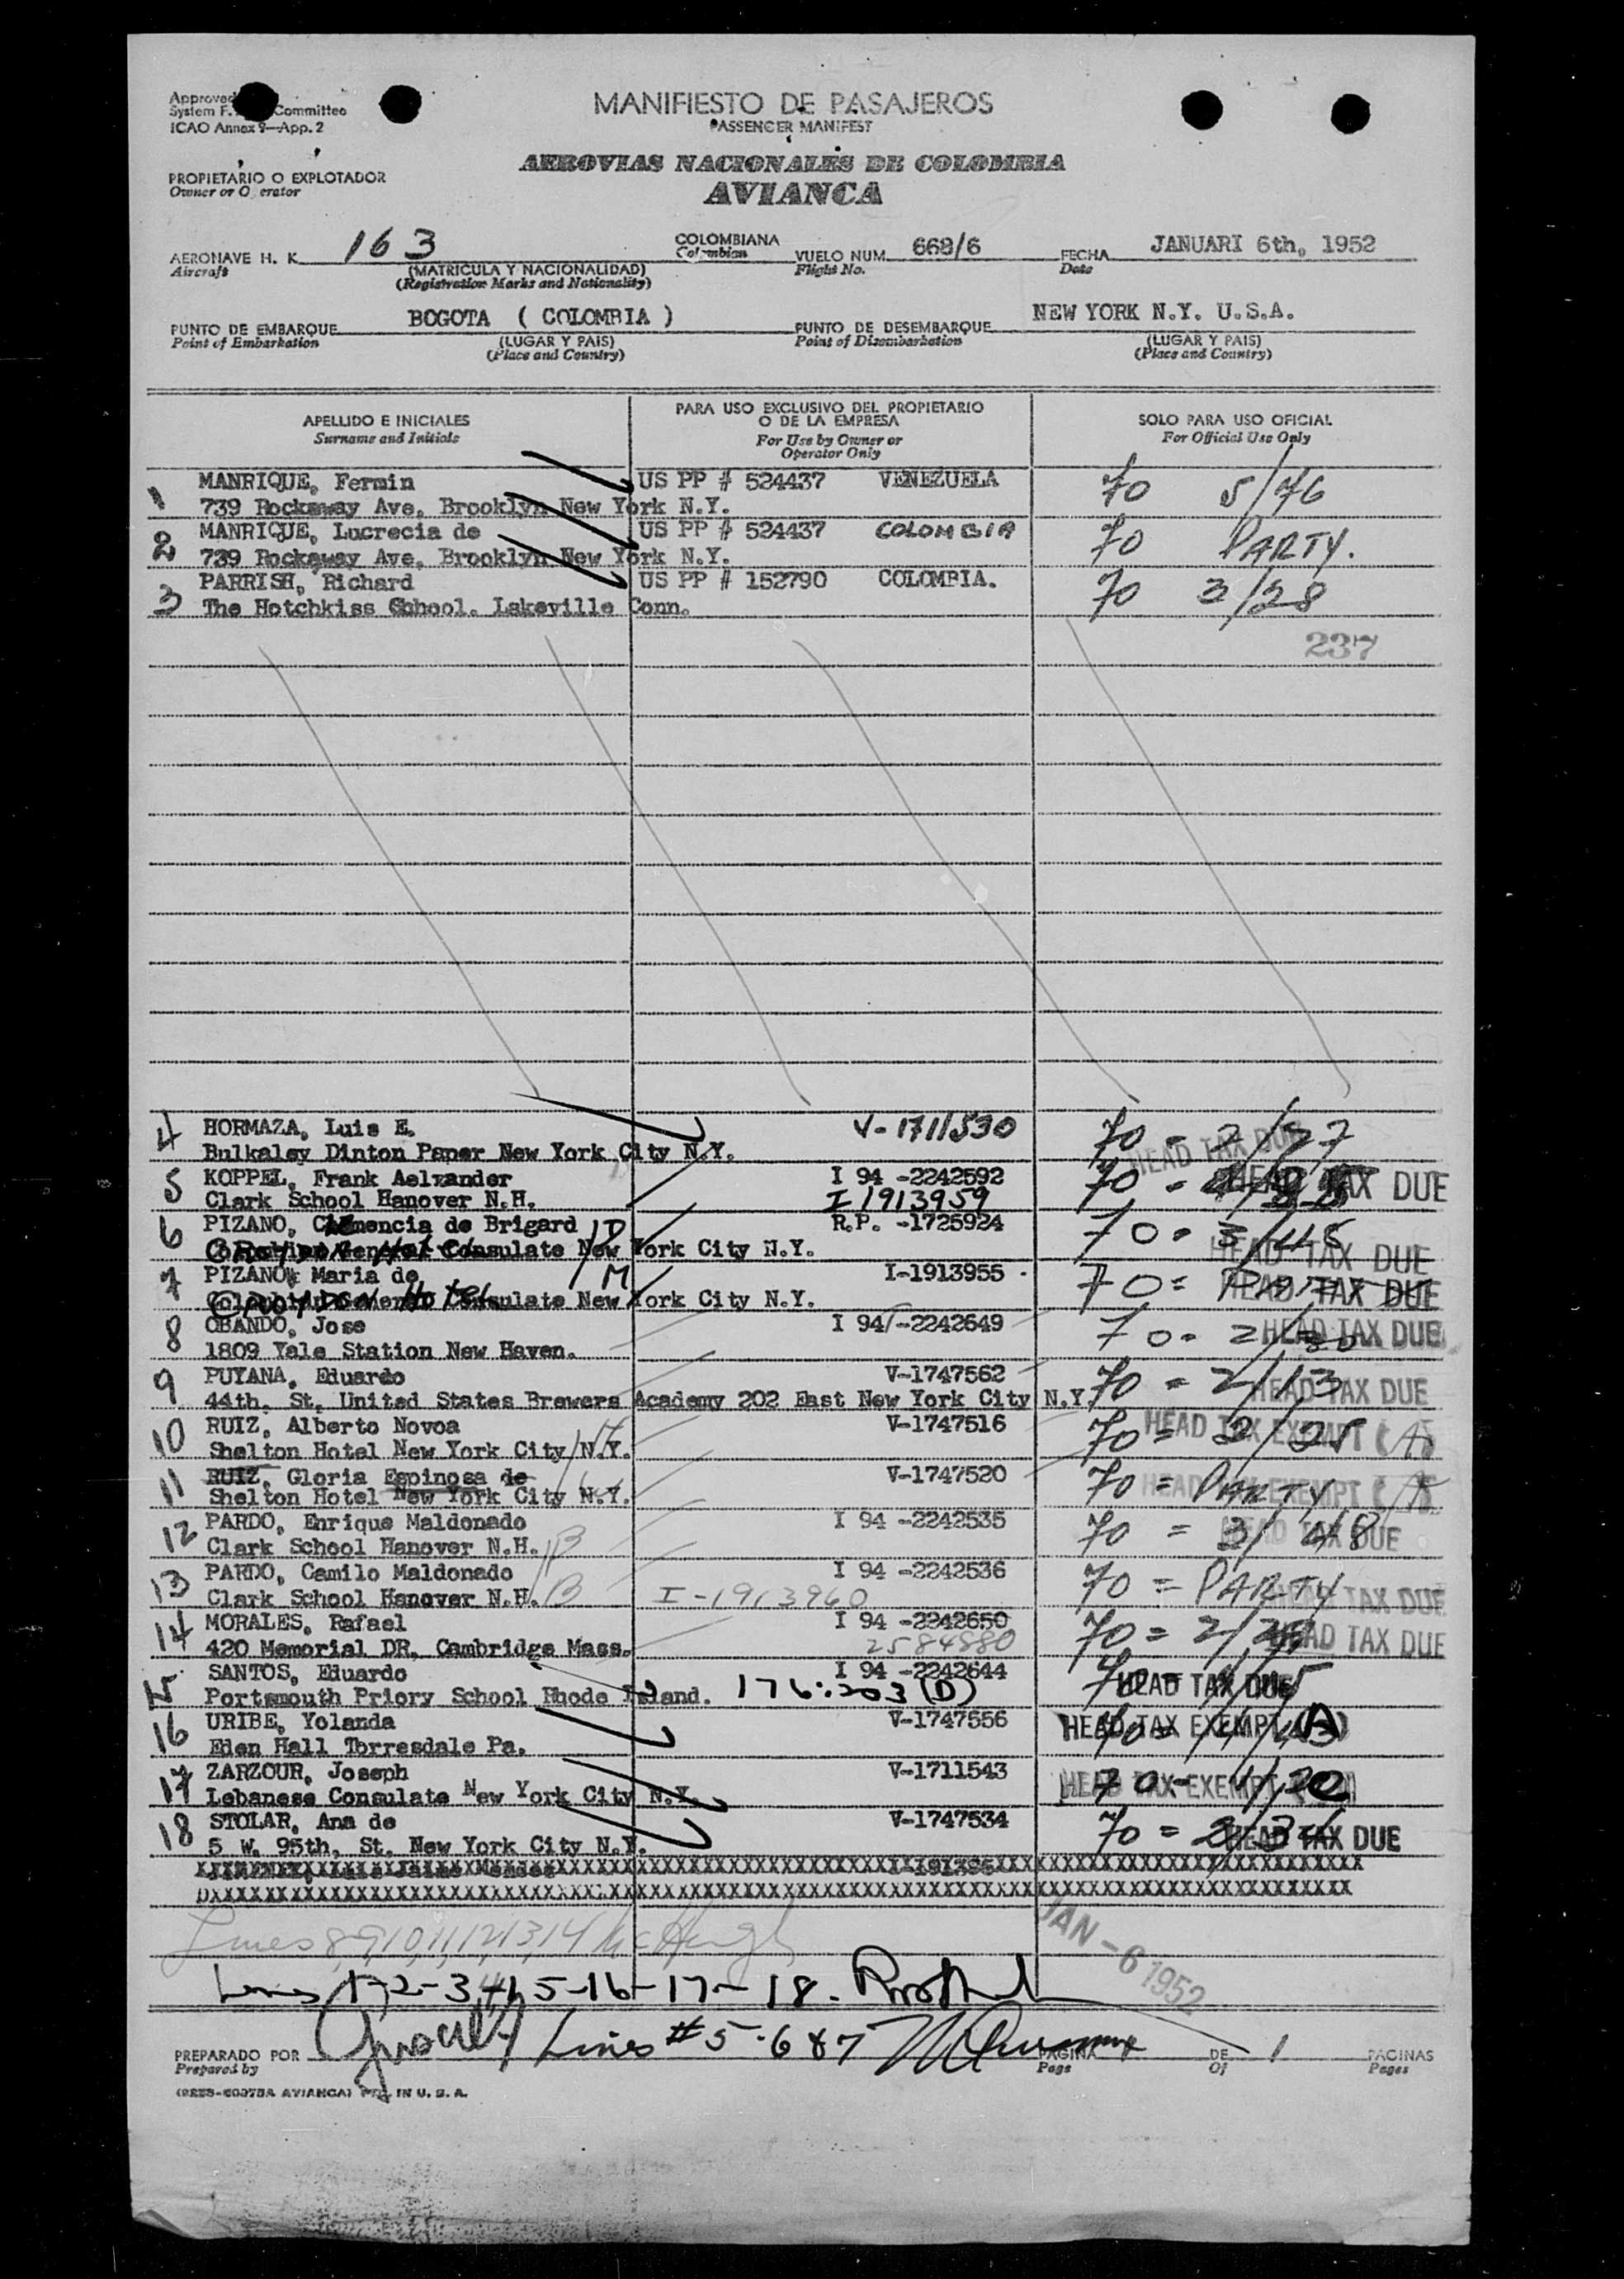 Approved
System F. Committee
ICAO Annex 9—App. 2
MANIFIESTO DE PASAJEROS
PASSENGER MANIFEST
AEROVIAS NACIONALES DE COLOMBIA
AVIANCA
PROPIETARIO O EXPLOTADOR
Owner or O erator
AERONAVE H. K. 163 COLOMBIANA VUELO NUM. 668/6 FECHA JANUARI 6th, 1952
Aircraft (MATRICULA Y NACIONALIDAD) Colombian Flight No. Date
(Registration Marks and Nationality)
PUNTO DE EMBARQUE BOGOTA ( COLOMBIA ) PUNTO DE DESEMBARQUE NEW YORK N.Y. U.S.A.
Point of Embarkation (LUGAR Y PAIS) Point of Disembarkation (LUGAR Y PAIS)
(Place and Country) (Place and Country)
APELLIDO E INICIALES PARA USO EXCLUSIVO DEL PROPIETARIO O DE LA EMPRESA SOLO PARA USO OFICIAL
Surname and Initials For Use by Owner or Operator Only For Official Use Only
1 MANRIQUE, Fermin US PP # 524437 VENEZUELA 70 5/76
739 Rockaway Ave. Brooklyn New York N.Y.
2 MANRIQUE, Lucrecia de US PP # 524437 COLOMBIA 70 PARTY.
739 Rockaway Ave. Brooklyn New York N.Y.
3 PARRISH, Richard US PP # 152790 COLOMBIA. 70 3/28
The Hotchkiss Schoool. Lakeville Conn.
237
4 HORMAZA, Luis E. V-1711530 70 - 2/27
Bulkaley Dinton Paper New York City N.Y. HEAD TAX DUE
5 KOPPEL, Frank Aelxander I 94 -2242592 70 - HEAD TAX DUE
Clark School Hanover N.H. I 1913959
6 PIZANO, Clemencia de Brigard D R.P. -1725924 70 - 3/45
Consulate New York City N.Y. HEAD TAX DUE
7 PIZANO, Maria de M I-1913955 70 = HEAD TAX DUE
Consulate New York City N.Y.
8 OBANDO, Jose I 94 -2242649 70 - 2/30 HEAD TAX DUE
1809 Yale Station New Haven.
9 PUYANA, Eduardo V-1747562 70 = 2/13 HEAD TAX DUE
44th. St. United States Brewers Academy 202 East New York City N.Y.
10 RUIZ, Alberto Novoa V-1747516 70 = 2/25 HEAD TAX EXEMPT (A)
Shelton Hotel New York City N.Y.
11 RUIZ, Gloria Espinosa de V-1747520 70 = PARTY HEAD TAX EXEMPT (A)
Shelton Hotel New York City N.Y.
12 PARDO, Enrique Maldonado I 94 -2242535 70 = 3/48 HEAD TAX DUE
Clark School Hanover N.H. B
13 PARDO, Camilo Maldonado I 94 -2242536 70 = PARTY HEAD TAX DUE
Clark School Hanover N.H. B I-1913960
14 MORALES, Rafael I 94 -2242650 70 = HEAD TAX DUE
420 Memorial DR. Cambridge Mass. 2584880
15 SANTOS, Eduardo I 94 -2242644 HEAD TAX DUE
Portsmouth Priory School Rhode Island. 176:203 (D)
16 URIBE, Yolanda V-1747556 HEAD TAX EXEMPT (A)
Eden Hall Torresdale Pa.
17 ZARZOUR, Joseph V-1711543 HEAD TAX EXEMPT
Lebanese Consulate New York City N.Y.
18 STOLAR, Ana de V-1747534 70 = HEAD TAX DUE
5 W. 95th, St. New York City N.Y.
Lines 8,9,10,11,12,13,14 McHugh
JAN - 6 1952
Lines 1-2-3-4-15-16-17-18.
Lines #5-6&7
PREPARADO POR PAGINA DE 1 PAGINAS
Prepared by Page Of Pages
AVIANCA) IN U. S. A.